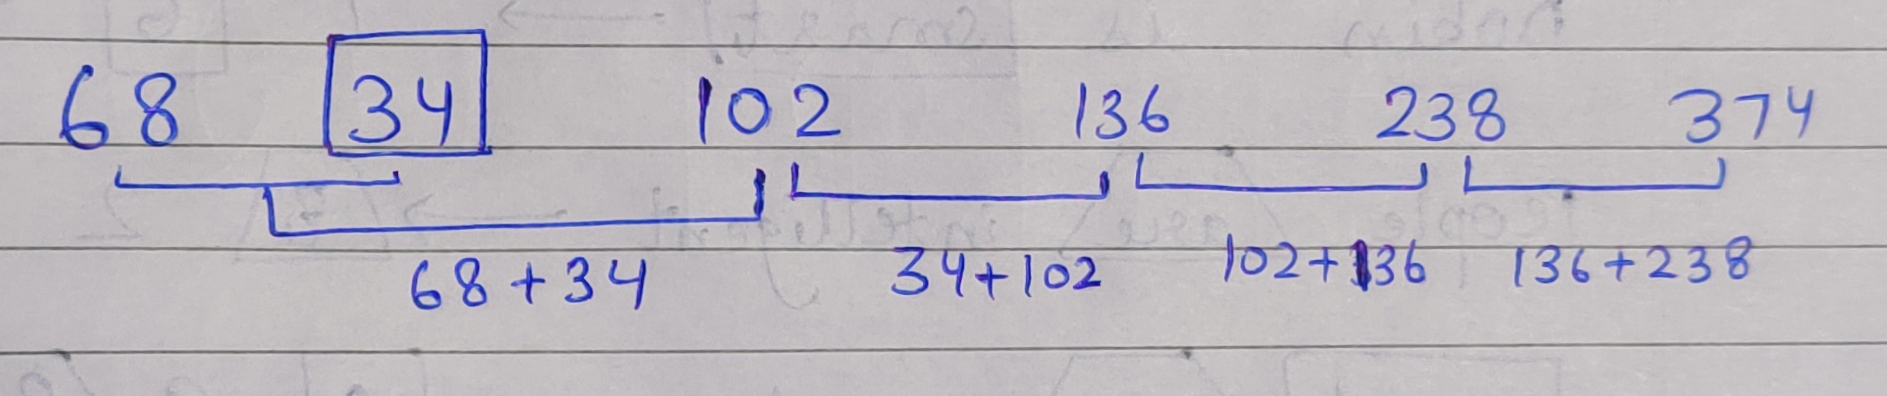 68 34 102 136 238 374
68+34 34+102 102+136 136+238